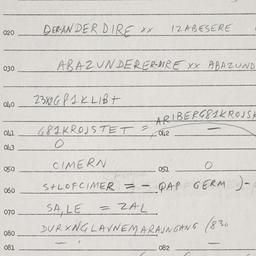 020 DERANDERDIRE xx IZABESERE
030 ABAZUNDERERDIRE xx ABAZUND
040 23X2G81KLIBT
ARIBERG81KROJSK
041 G81KROJSTET = 042 —
043 O
050 CIMERN 051 O
060 S+LOFCIMER = - QAP GERM )-
070 SA,LE = ZAL
080 DURXNGLAVNEMARAJNGANG (830
081 — 082 —